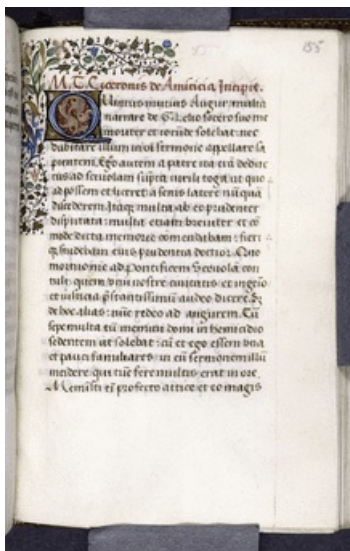 155
M.T. Ciceronis de Amicicia, Incipit.
Quintus mutius Augur, multa
narrare de C. Lelio socero suo me
moriter et iocũde solebat: nec
dubitare illum in oĩ sermone appellare sa
pientem. Ego autem a patre ita erã deduc
tus ad scevolam sũpta virili toga, ut quo
ad possem et liceret a senis latere nũquã
discederem. Itaq; multa ab eo prudenter
disputata: multa etiam breviter et cõ
mode dicta memorie cõmendabam: fieri
q; studebam eius prudentia doctior. Quo
mortuo me ad pontificem scevolã con
tuli: quem unũ nostre civitatis et ingenio
et iusticia p̃stantissimum audeo dicere. Sz
de hoc alias: nũc redeo ad augurem. Cũ
sepe multa tũ memini domi in hemiciclo
sedentem ut solebat: cũ et ego essem una
et pauci familiares: in eũ sermonem illũ
incidere qui tũc fere multis erat in ore.
Meministi profecto attice et eo magis